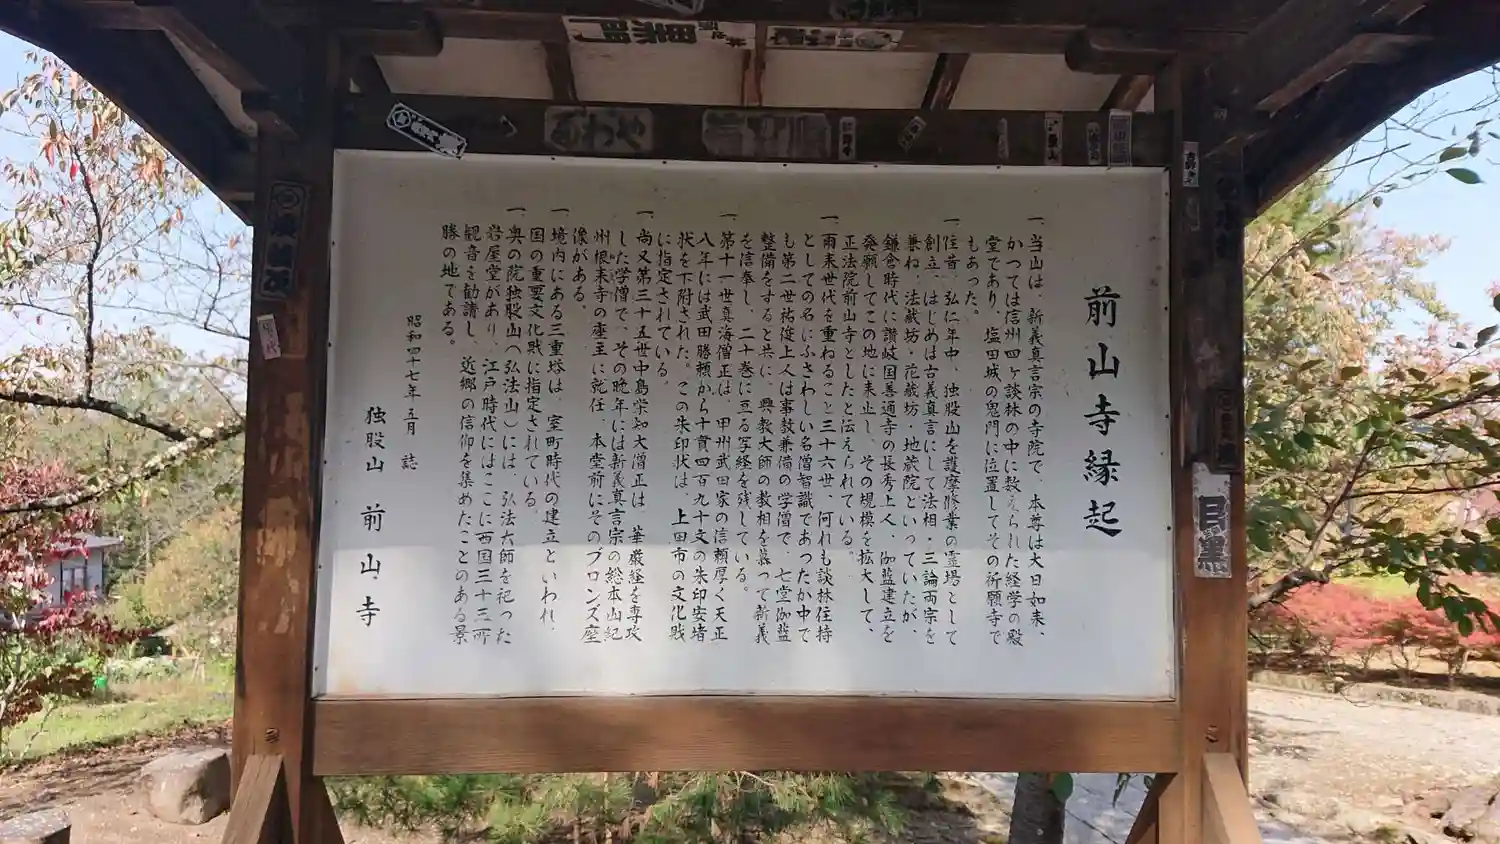 前山寺縁起
一、当山は、新義真言宗の寺院で、本尊は大日如来、
かつては信州四ケ談林の中に数えられた経学の殿
堂であり、塩田城の鬼門に位置してその祈願寺で
もあった。
一、往昔、弘仁年中、独股山を護摩修業の霊場として
創立、はじめは古義真言にして法相・三論両宗を
兼ね、法蔵坊・花蔵坊・地蔵院といっていたが、
鎌倉時代に讃岐国善通寺の長秀上人、伽藍建立を
発願してこの地に来止し、その規模を拡大して、
正法院前山寺としたと伝えられている。
一、爾来世代を重ねること三十六世、何れも談林住持
としての名にふさわしい名僧智識であったが中で
も第二世祐俊上人は事教兼備の学僧で、七堂伽藍
整備をすると共に、興教大師の教相を慕って新義
を信奉し、二十巻に亘る写経を残している。
一、第十一世真海僧正は、甲州武田家の信頼厚く天正
八年には武田勝頼から十貫四百九十文の朱印安堵
状を下附された。この朱印状は、上田市の文化財
に指定されている。
一、尚又第三十五世中島栄知大僧正は、華厳経を専攻
した学僧で、その晩年には新義真言宗の総本山紀
州根来寺の座主に就任、本堂前にそのブロンズ座
像がある。
一、境内にある三重塔は、室町時代の建立といわれ、
国の重要文化財に指定されている。
一、奥の院独股山(弘法山)には、弘法大師を祀った
岩屋堂があり、江戸時代にはここに西国三十三所
観音を勧請し、近郷の信仰を集めたことのある景
勝の地である。
昭和四十七年五月 誌
独股山 前山寺
目黒